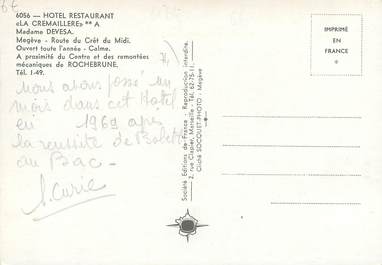 6€
6056 — HOTEL RESTAURANT
«LA CREMAILLERE» ** A
Madame DEVESA.
Megève - Route du Crêt du Midi.
Ouvert toute l'année - Calme.
A proximité du Centre et des remontées
mécaniques de ROCHEBRUNE.
Tél. 1-49.
Nous avons passé un
mois dans cet Hotel
en 1969 après
la reussite de
au Bac -
S. Curie
Société Editions de France - Reproduction interdite
2, rue Clapier, Marseille - Tél. 62-75-11.
Cliché SOCQUET-PHOTO - Megève
IMPRIMÉ
EN
FRANCE